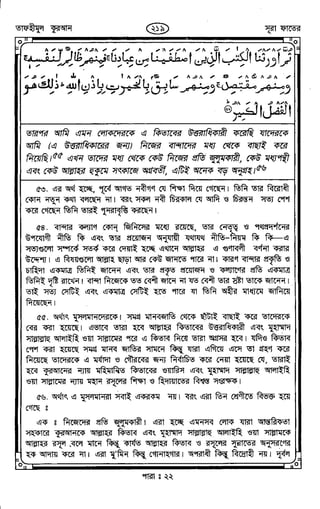 তাফহীমুল কুরআন
২১৯
সূরা ফাতের
ثُمَّ أَوْرَثْنَا الْكِتٰبَ الَّذِينَ اصْطَفَيْنَا مِنْ عِبَادِنَا ۚ فَمِنْهُمْ ظَالِمٌ لِّنَفْسِهِ ۚ
وَمِنْهُمْ مُّقْتَصِدٌ ۚ وَمِنْهُمْ سَابِقٌ بِالْخَيْرٰتِ بِإِذْنِ اللهِ ۚ ذٰلِكَ هُوَ
الْفَضْلُ الْكَبِيرُ
তারপর আমি এমন লোকদেরকে এ কিতাবের উত্তরাধিকারী করেছি যাদেরকে
আমি (এ উত্তরাধিকারের জন্য) নিজের বান্দাদের মধ্য থেকে বাছাই করে
নিয়েছি।৫৫ এখন তাদের মধ্য থেকে কেউ নিজের প্রতি জুলুমকারী, কেউ মধ্যপন্থী
এবং কেউ আল্লাহর হুকুমে সৎকাজে অগ্রবর্তী, এটিই অনেক বড় অনুগ্রহ।৫৬
৫৩. এর অর্থ হচ্ছে, পূর্বে আগত নবীগণ যে শিক্ষা দিয়ে গেছেন। তিনি তার বিরোধী
কোন নতুন কথা বলছেন না। বরং সকল নবী চিরকাল যে আদি ও চিরন্তন সত্য পেশ
করে গেছেন তিনি তারই পুনরাবৃত্তি করছেন।
৫৪. বান্দার কল্যাণ কোন্ জিনিসের মধ্যে রয়েছে, তার নেতৃত্ব ও পথপ্রদর্শনের
উপযোগী নীতি কি এবং তার প্রয়োজন অনুযায়ী যথাযথ নীতি-নিয়ম কি কি—এ
সত্যগুলো সম্পর্কে সতর্ক করে দেয়াই হচ্ছে এখানে আল্লাহর এ গুণাবলী বর্ণনা করার
উদ্দেশ্য। এ বিষয়গুলো আল্লাহ ছাড়া আর কেউ জানতে পারে না। কারণ বান্দার প্রকৃতি ও
চাহিদা একমাত্র তিনিই জানেন এবং তার প্রকৃত প্রয়োজন ও কল্যাণের প্রতি একমাত্র
তিনিই দৃষ্টি রাখেন। বান্দা নিজেকে তত বেশী জানে না যত বেশী তার স্রষ্টা তাকে জানেন।
তাই সত্য সেটিই এবং একমাত্র সেটিই হতে পারে যা তিনি অহীর মাধ্যমে জানিয়ে
দিয়েছেন।
৫৫. অর্থাৎ মুসলমানদেরকে। সমগ্র মানবজাতি থেকে ছাঁটাই বাছাই করে তাদেরকে
বের করা হয়েছে। এভাবে তারা হবে আল্লাহর কিতাবের উত্তরাধিকারী এবং মুহাম্মাদ
সাল্লাল্লাহু আলাইহি ওয়া সাল্লামের পরে এ কিতাব নিয়ে তারা অগ্রসর হবে। যদিও কিতাব
পেশ করা হয়েছে সমগ্র মানব জাতির সামনে কিন্তু যারা এগিয়ে এসে তা গ্রহণ করে
নিয়েছে তাদেরকে এ মর্যাদা ও গৌরবের জন্য নির্বাচিত করে নেয়া হয়েছে যে, তারাই
হবে কুরআনের ন্যায় মহিমান্বিত কিতাবের ওয়ারিস এবং মুহাম্মাদ সাল্লাল্লাহু আলাইহি
ওয়া সাল্লামের ন্যায় মহান রসূলের শিক্ষা ও হিদায়াতের বিশ্বস্ত সংরক্ষক।
৫৬. অর্থাৎ এ মুসলমানরা সবাই একরকম নয়। বরং এরা তিন শ্রেণীতে বিভক্ত হয়ে
গেছে ঃ
এক ঃ নিজেদের প্রতি জুলুমকারী। এরা হচ্ছে এমনসব লোক যারা আন্তরিকতা
সহকারে কুরআনকে আল্লাহর কিতাব এবং মুহাম্মাদ সাল্লাল্লাহু আলাইহি ওয়া সাল্লামকে
আল্লাহর রসূল বলে মানে কিন্তু কার্যত আল্লাহর কিতাব ও রসূলের সুন্নাতের অনুসরণের
হক আদায় করে না। এরা মু'মিন কিন্তু গোনাহগার। অপরাধী কিন্তু বিদ্রোহী নয়। দুর্বল
পারা ঃ ২২